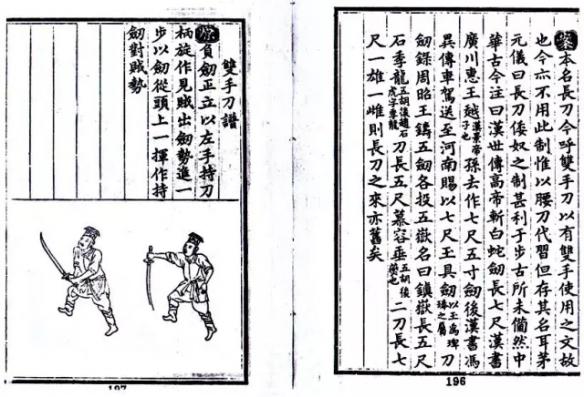 案本名長刀今呼雙手刀以有雙手使用之文故
也今亦不用此制惟以腰刀代習但存其名耳茅
元儀曰長刀倭奴之制甚利于步古所未備然中
華古今注曰漢世傳高帝斬白蛇劒長七尺漢書
廣川惠王越漢景帝子也孫去作七尺五寸劒後漢書馮
異傳車駕送至河南賜以七尺玉具劒以玉爲琕琫之屬刀
劒錄周昭王鑄五劒各投五嶽名曰鎮嶽長五尺
石季龍五胡後趙石虎字季龍刀長五尺慕容垂五胡後燕也二刀長七
尺一雄一雌則長刀之來亦舊矣
196
雙手刀譜
原負劒正立以左手持刀
柄旋作見賊出劒勢進一
步以劒從頭上一揮作持
劒對賊勢
197